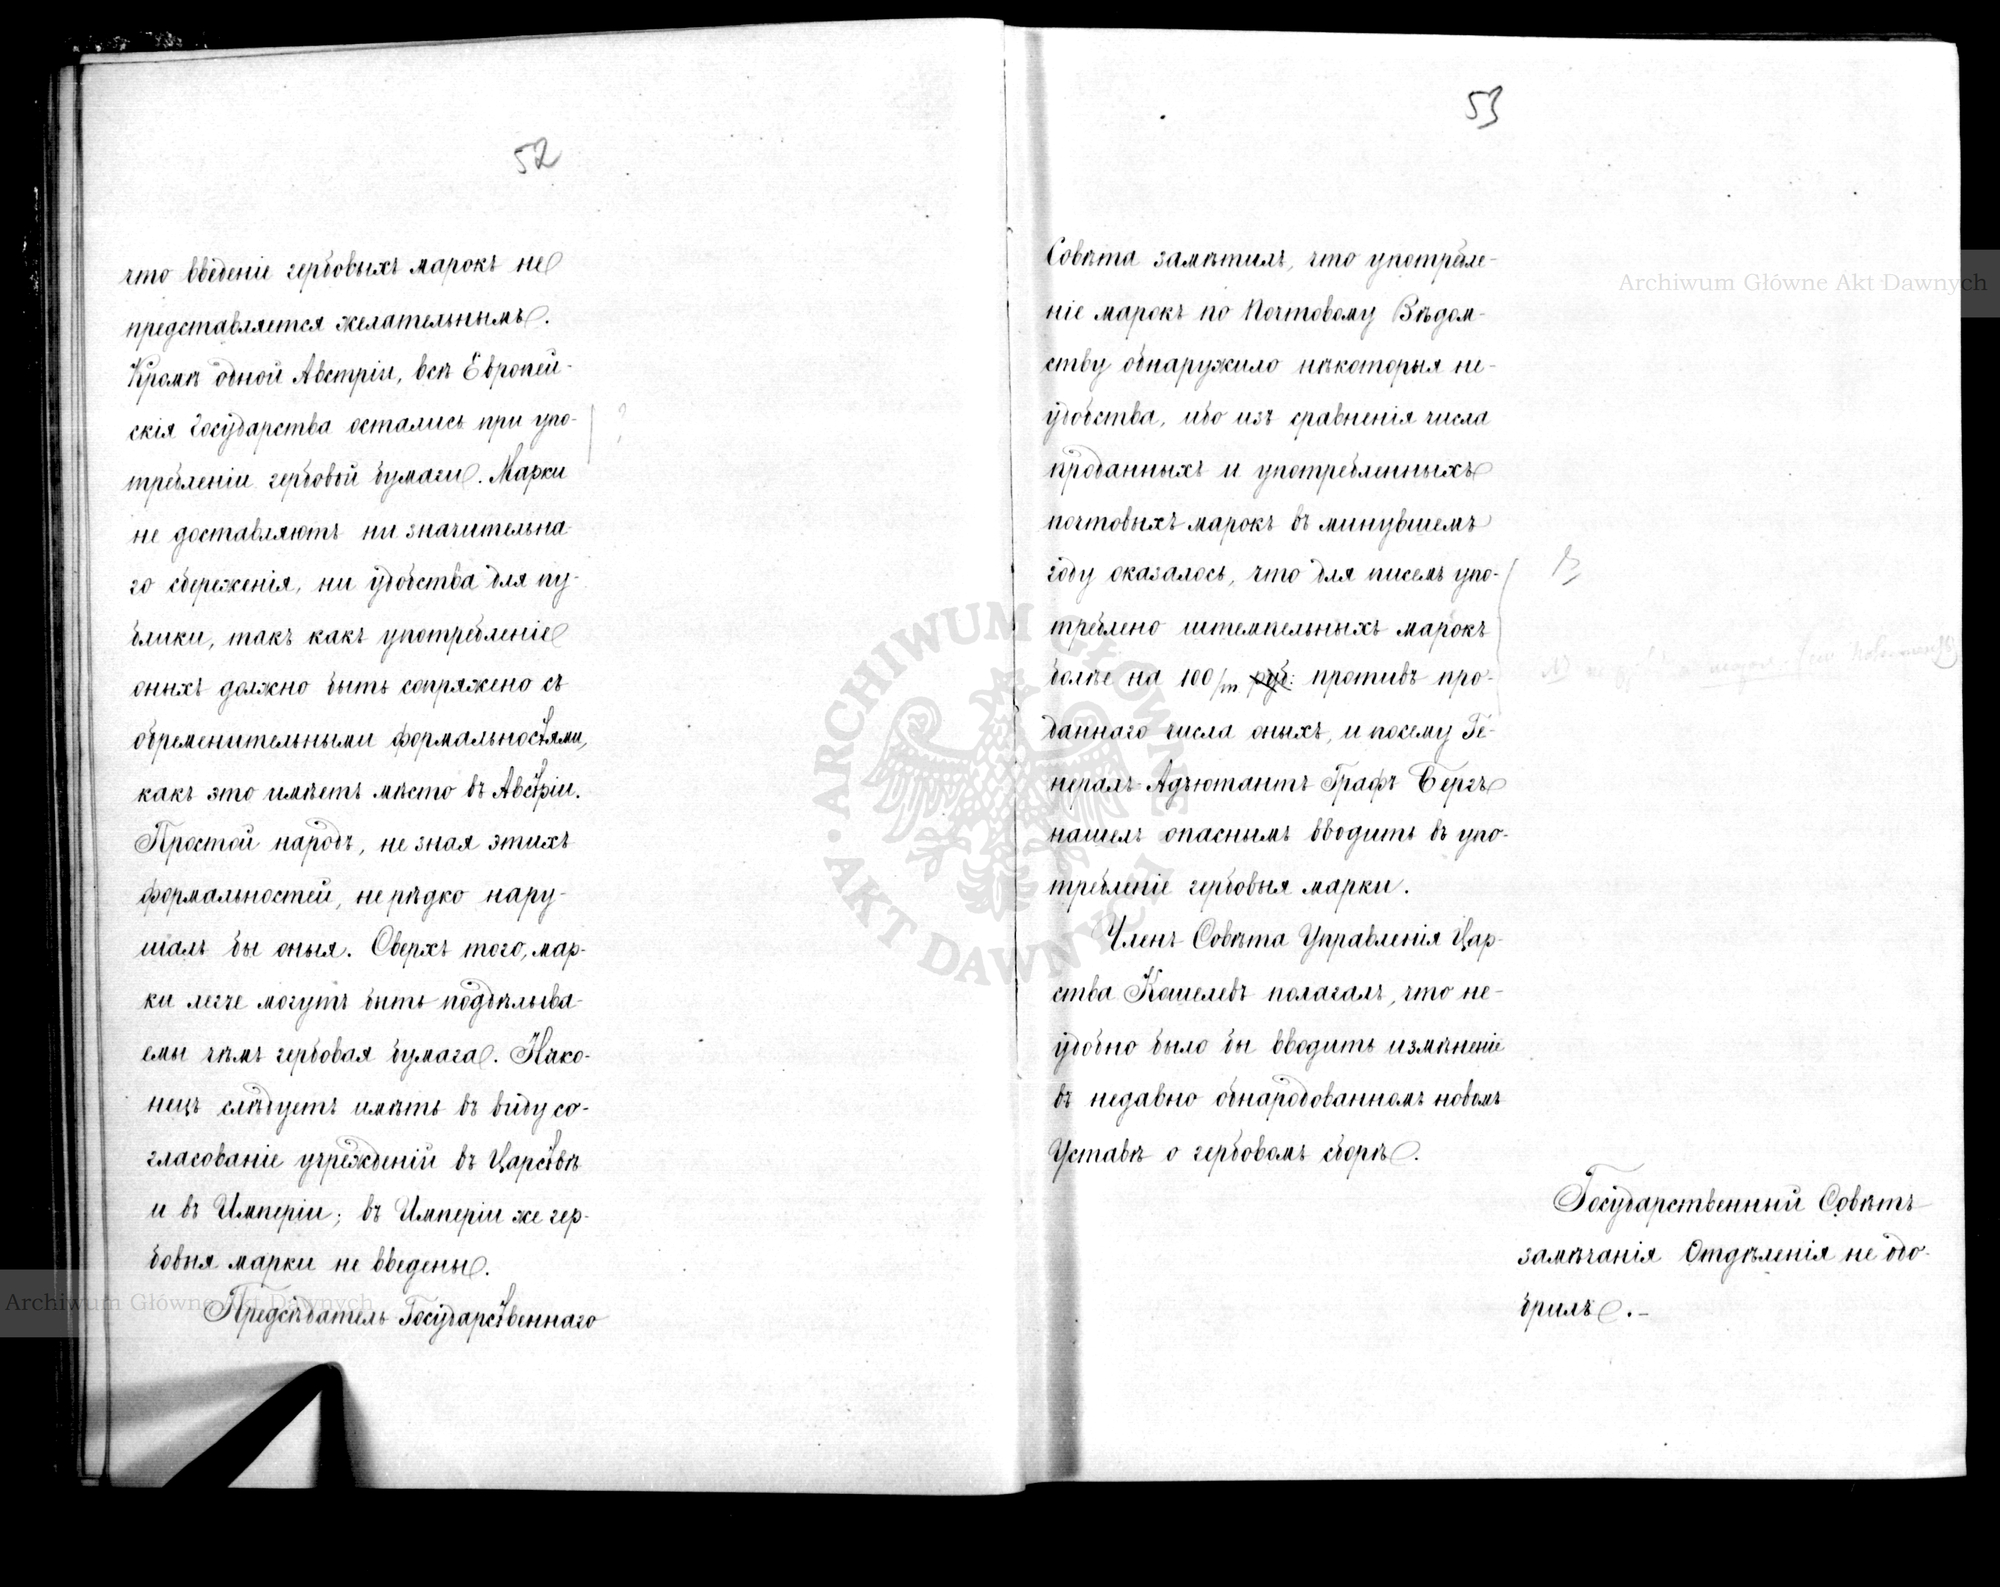 52
что введеніе гербовыхъ марокъ не
представляется желательнымъ.
Кромѣ одной Австріи, всѣ Европей-
скія Государства остались при упо-
?
требленіи гербовой бумаги. Марки
не доставляютъ ни значительна-
го сбереженія, ни удобства для пу-
блики, такъ какъ употребленіе
оныхъ должно быть сопряжено съ
обременительными формальностями,
какъ это имѣетъ мѣсто въ Австріи.
Простой народъ, не зная этихъ
формальностей, не рѣдко нару-
шалъ бы оныя. Сверхъ того, мар-
ки легче могутъ быть поддѣлыва-
емы чѣмъ гербовая бумага. Нако-
нецъ слѣдуетъ имѣть въ виду со-
гласованіе учрежденій въ Царствѣ
и въ Имперіи; въ Имперіи же гер-
бовыя марки не введены.
Предсѣдатель Государственнаго
53
Совѣта замѣтилъ, что употребле-
ніе марокъ по Почтовому Вѣдом-
ству обнаружило нѣкоторыя не-
удобства, ибо изъ сравненія числа
проданныхъ и употребленныхъ
почтовыхъ марокъ въ минувшемъ
году оказалось, что для писемъ упо-
треблено штемпельныхъ марокъ
болѣе на 100/m руб: противъ про-
даннаго числа оныхъ, и посему Ге-
нералъ-Адъютантъ Графъ Бергъ
нашелъ опаснымъ вводить въ упо-
требленіе гербовыя марки.
Членъ Совѣта Управленія Цар-
ства Кошелевъ полагалъ, что не-
удобно было бы вводить измѣненіе
въ недавно обнародованномъ новомъ
Уставѣ о гербовомъ сборѣ.
Государственный Совѣтъ
замѣчанія Отдѣленія не одо-
брилъ.—
Archiwum Główne Akt Dawnych
Archiwum Główne Akt Dawnych
ARCHIWUM GŁÓWNE · AKT DAWNYCH ·